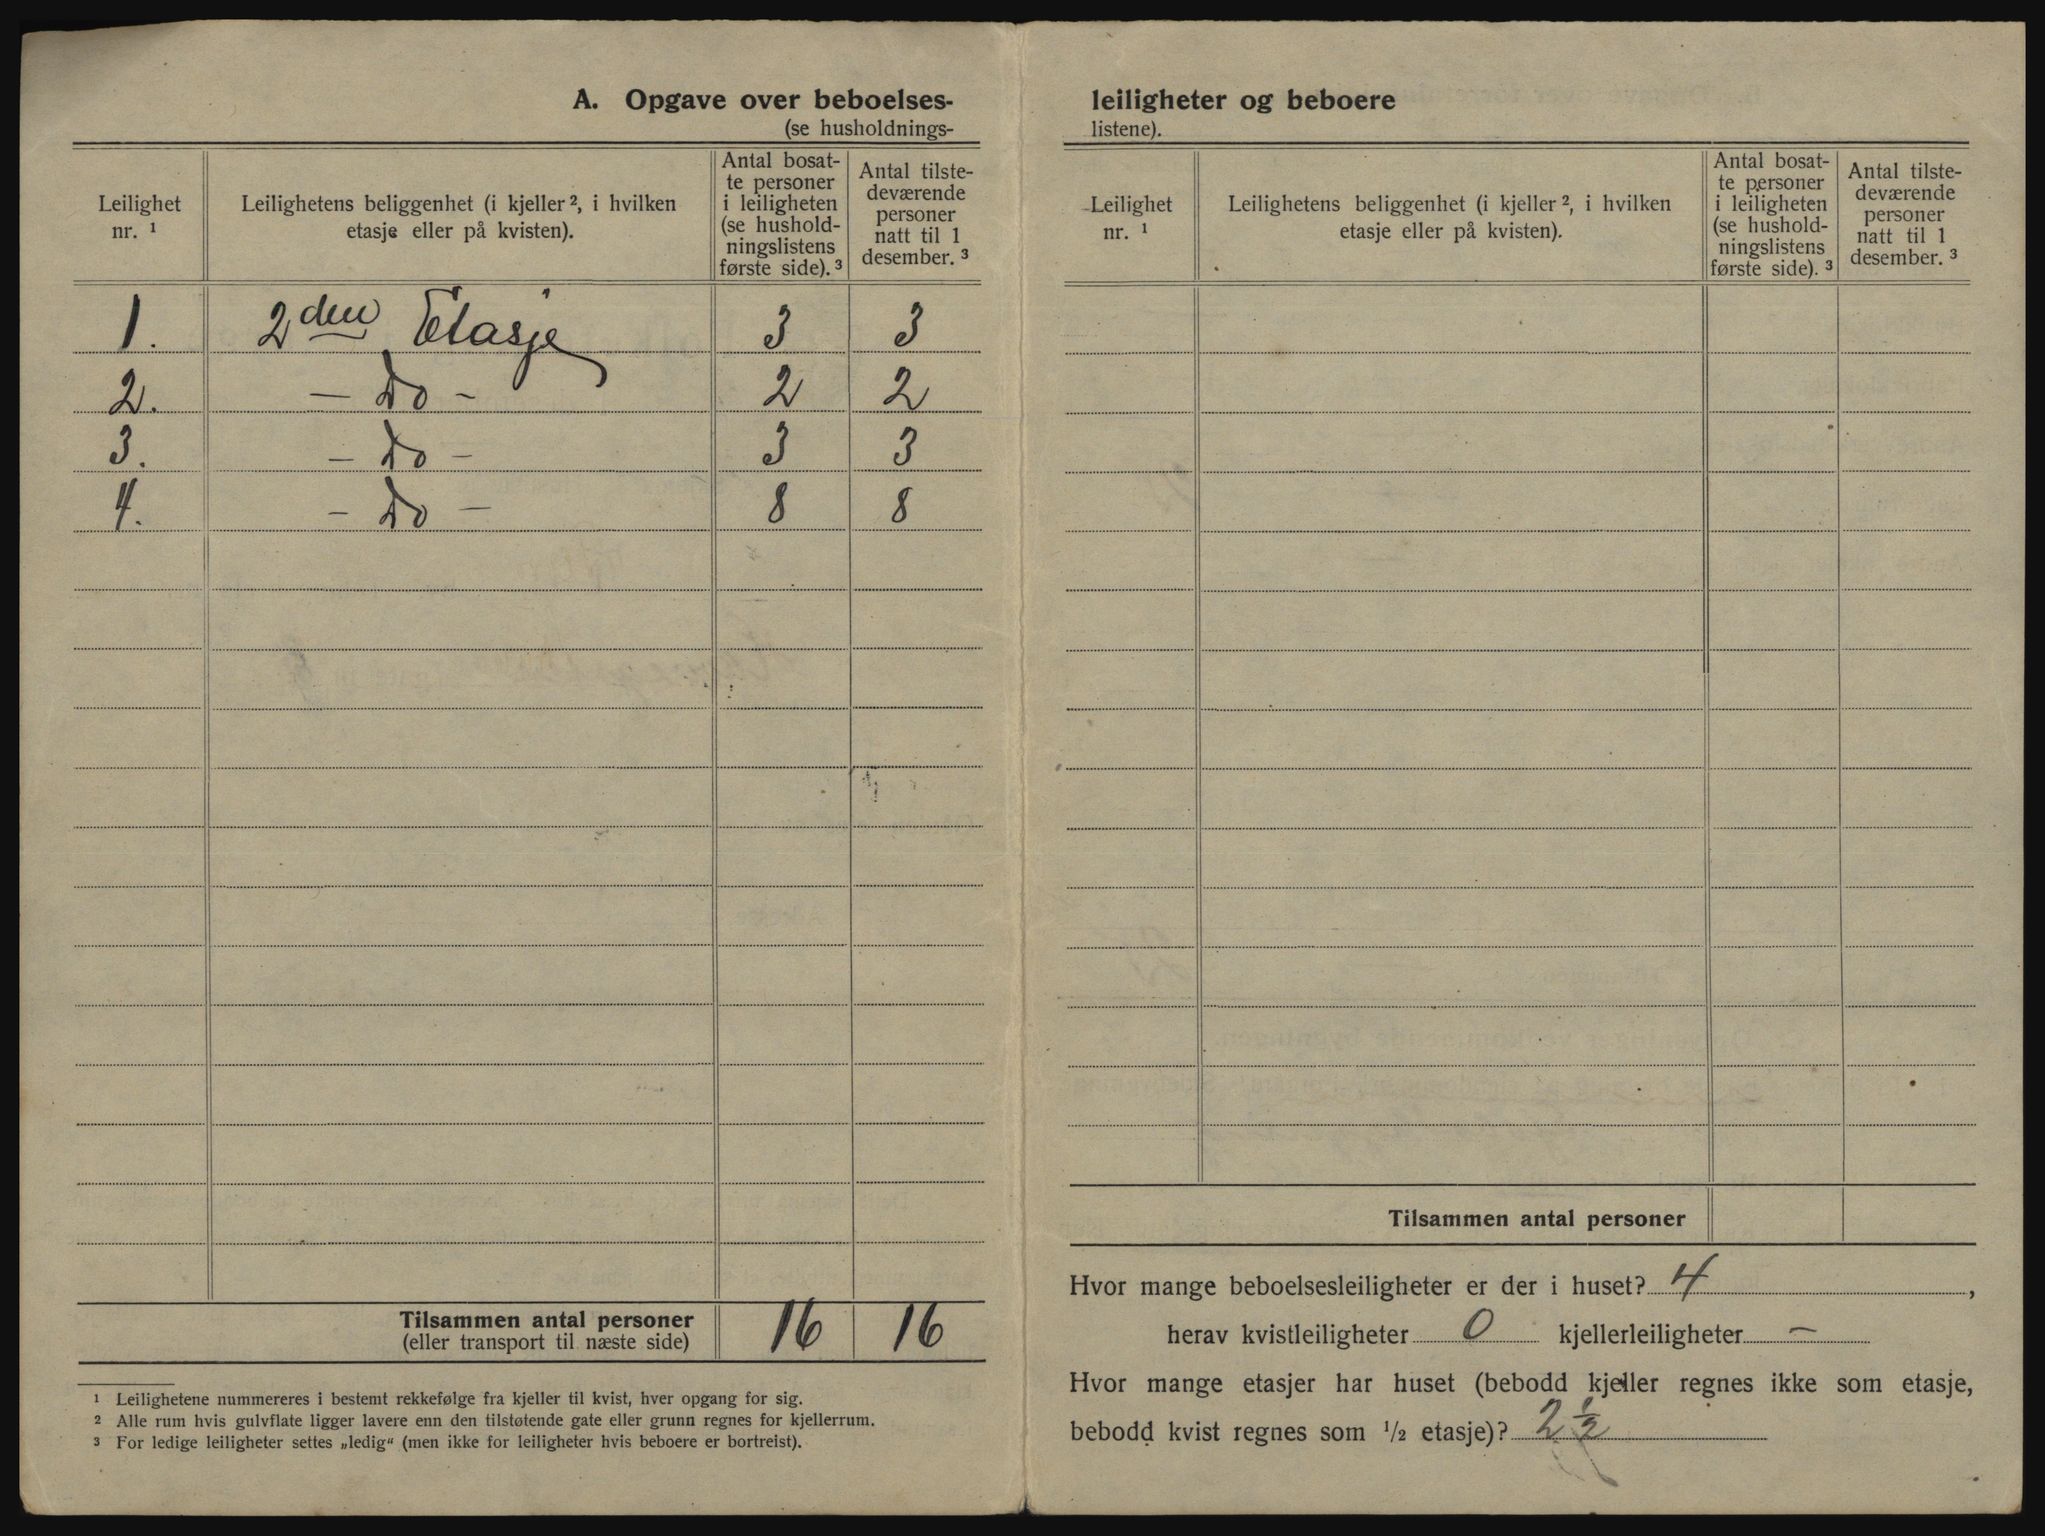 A. Opgave over beboelses-
(se husholdnings-
Leilighet
nr. ¹
Leilighetens beliggenhet (i kjeller ², i hvilken
etasje eller på kvisten).
Antal bosat-
te personer
i leiligheten
(se hushold-
ningslistens
første side). ³
Antal tilste-
deværende
personer
natt til 1
desember. ³
1. 2den Etasje 3 3
2. — Do - 2 2
3. — Do — 3 3
4. — Do — 8 8
Tilsammen antal personer
(eller transport til næste side)
16 16
¹ Leilighetene nummereres i bestemt rekkefølge fra kjeller til kvist, hver opgang for sig.
² Alle rum hvis gulvflate ligger lavere enn den tilstøtende gate eller grunn regnes for kjellerrum.
³ For ledige leiligheter settes „ledig“ (men ikke for leiligheter hvis beboere er bortreist).
leiligheter og beboere
listene).
Leilighet
nr. ¹
Leilighetens beliggenhet (i kjeller ², i hvilken
etasje eller på kvisten).
Antal bosat-
te personer
i leiligheten
(se hushold-
ningslistens
første side). ³
Antal tilste-
deværende
personer
natt til 1
desember. ³
Tilsammen antal personer
Hvor mange beboelsesleiligheter er der i huset? 4,
herav kvistleiligheter 0 kjellerleiligheter —
Hvor mange etasjer har huset (bebodd kjeller regnes ikke som etasje,
bebodd kvist regnes som 1/2 etasje)? 2 1/2